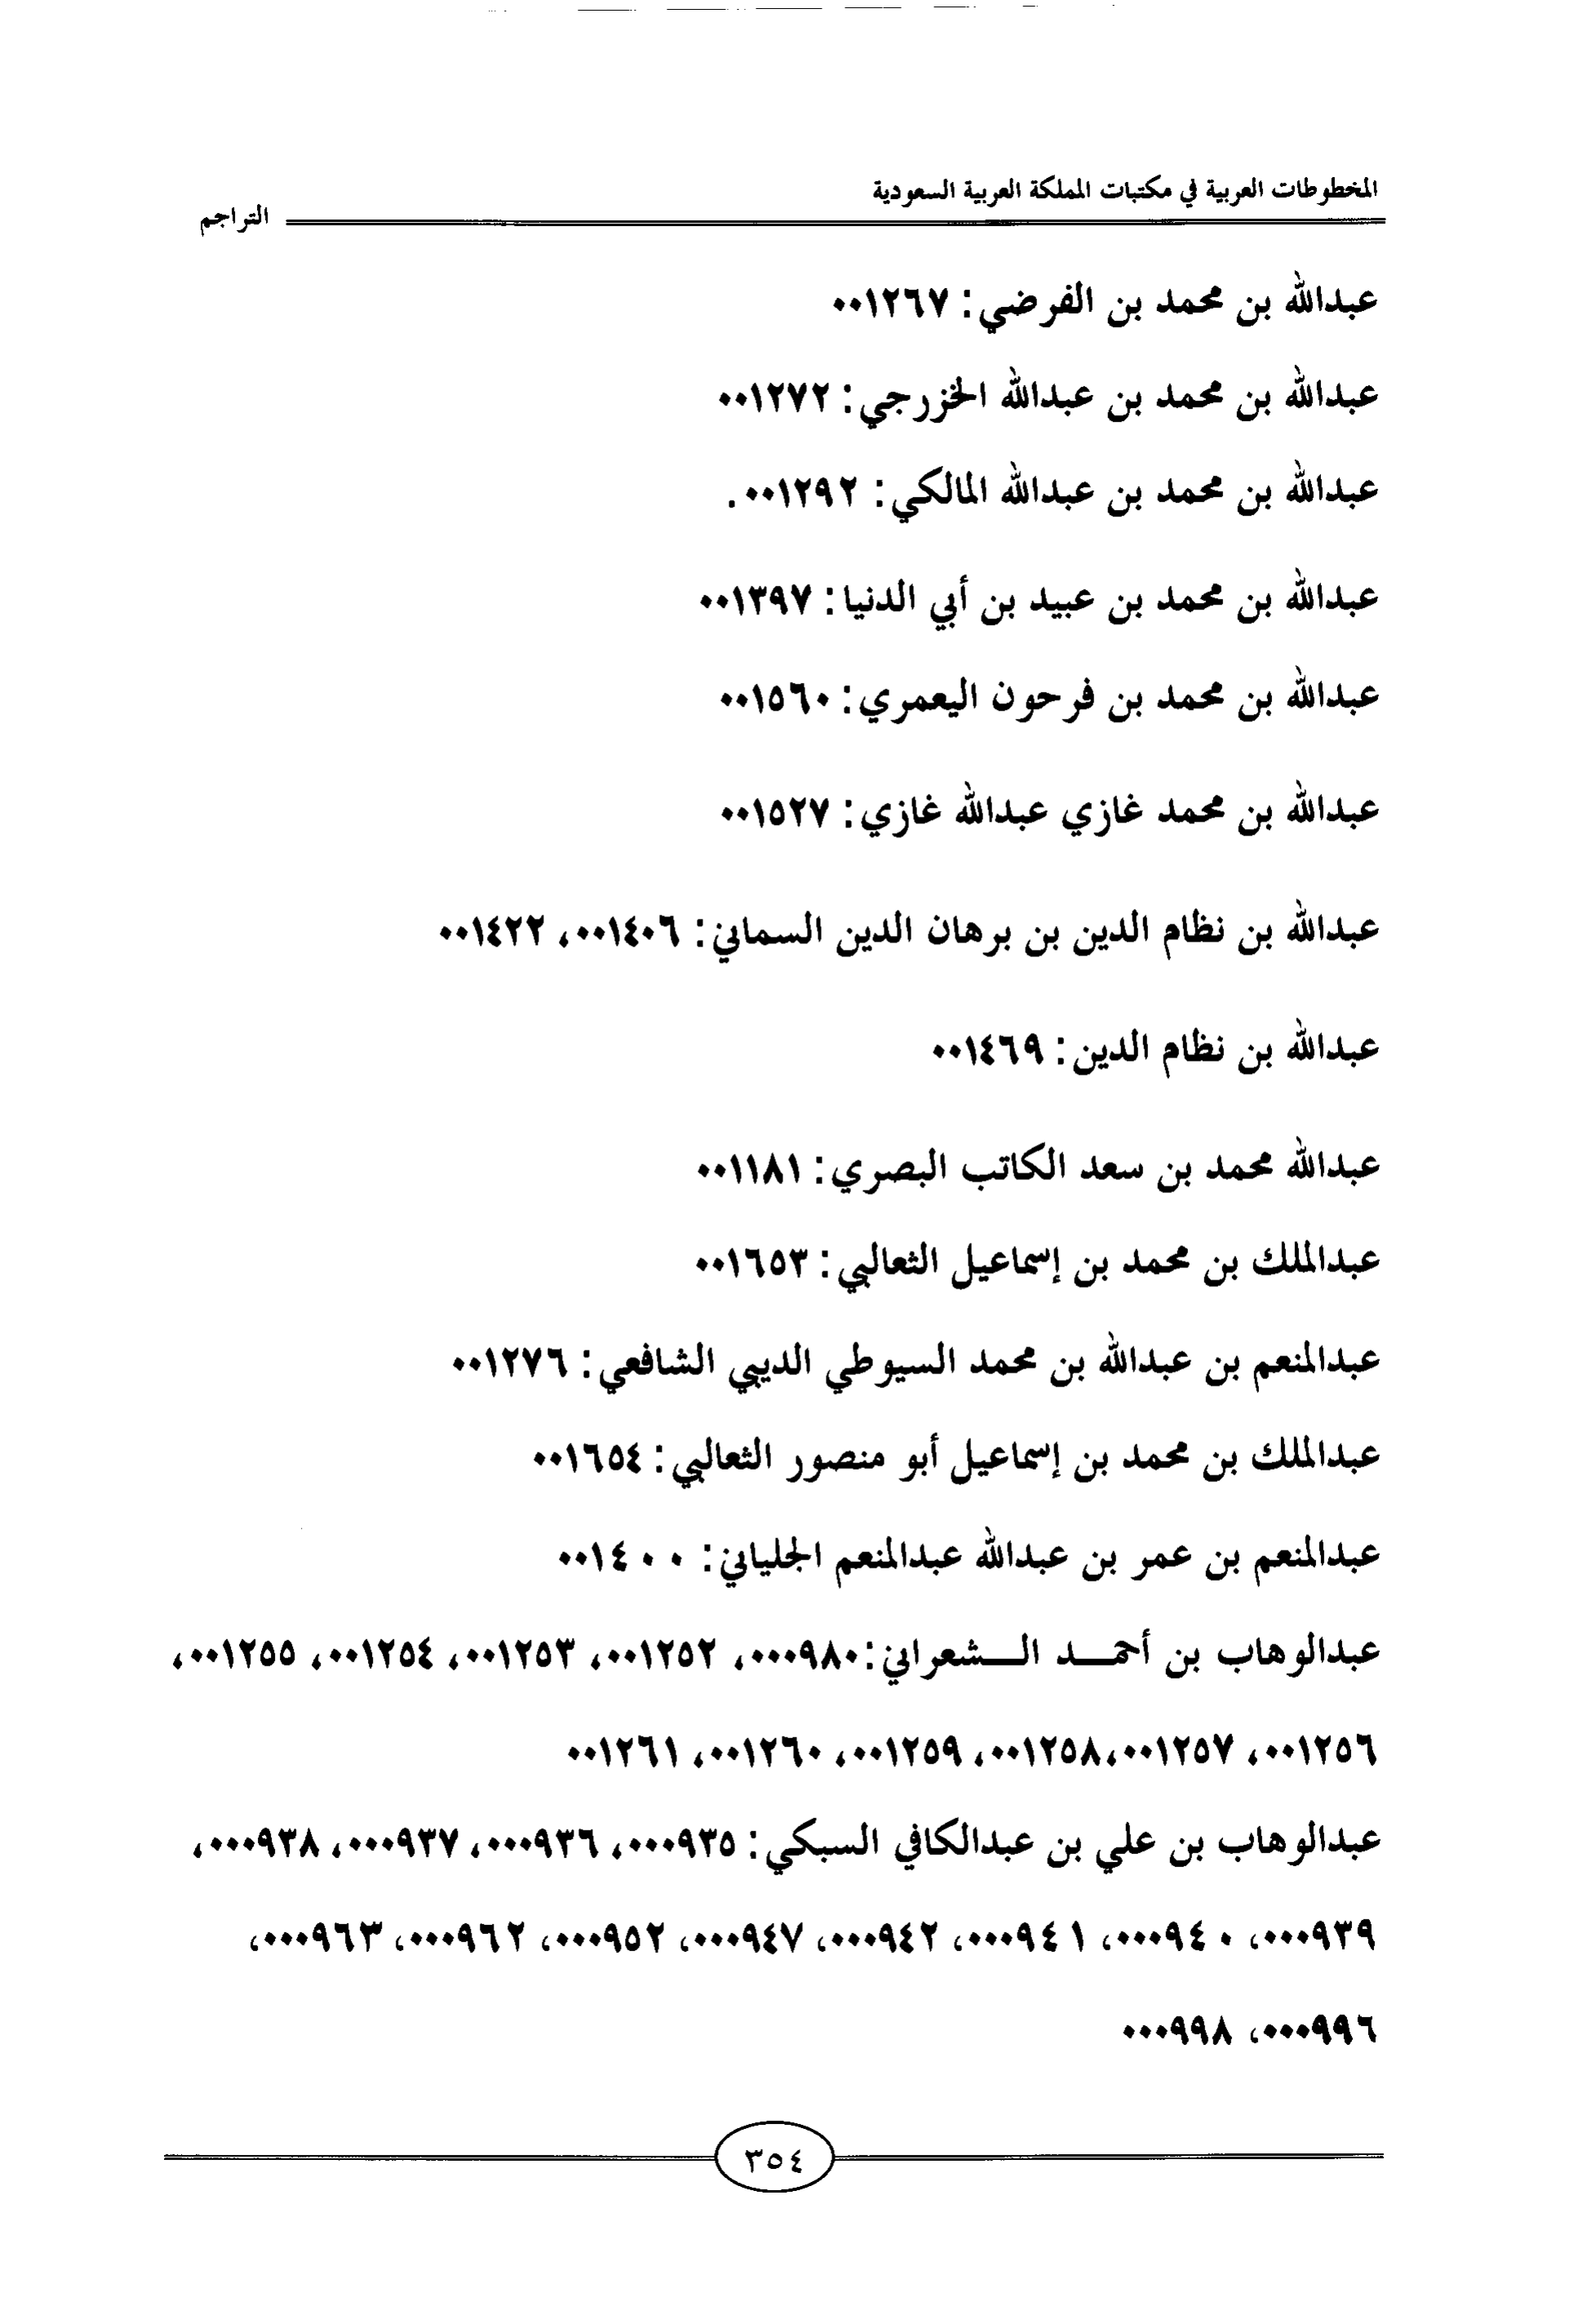 المخطوطات العربية في مكتبات المملكة العربية السعودية
التراجم
عبدالله بن محمد بن الفرضي: ٠٠١٢٦٧
عبدالله بن محمد بن عبدالله الخزرجي: ٠٠١٢٧٢
عبدالله بن محمد بن عبدالله المالكي: ٠٠١٢٩٢.
عبدالله بن محمد بن عبيد بن أبي الدنيا: ٠٠١٣٩٧
عبدالله بن محمد بن فرحون اليعمري: ٠٠١٥٦٠
عبدالله بن محمد غازي عبدالله غازي: ٠٠١٥٢٧
عبدالله بن نظام الدين بن برهان الدين السماني: ٠٠١٤٠٦، ٠٠١٤٢٢
عبدالله بن نظام الدين: ٠٠١٤٦٩
عبدالله محمد بن سعد الكاتب البصري: ٠٠١١٨١
عبدالملك بن محمد بن إسماعيل الثعالبي: ٠٠١٦٥٣
عبدالمنعم بن عبدالله بن محمد السيوطي الديبي الشافعي: ٠٠١٢٧٦
عبدالملك بن محمد بن إسماعيل أبو منصور الثعالبي: ٠٠١٦٥٤
عبدالمنعم بن عمر بن عبدالله عبدالمنعم الجلياني: ٠٠١٤٠٠
عبدالوهاب بن أحمـــد الـــشعراني:٠٠٠٩٨٠، ٠٠١٢٥٢، ٠٠١٢٥٣، ٠٠١٢٥٤، ٠٠١٢٥٥،
٠٠١٢٥٦، ٠٠١٢٥٧،٠٠١٢٥٨، ٠٠١٢٥٩، ٠٠١٢٦٠، ٠٠١٢٦١
عبدالوهاب بن علي بن عبدالكافي السبكي: ٠٠٠٩٣٥، ٠٠٠٩٣٦، ٠٠٠٩٣٧، ٠٠٠٩٣٨،
٠٠٠٩٣٩، ٠٠٠٩٤٠، ٠٠٠٩٤١، ٠٠٠٩٤٢، ٠٠٠٩٤٧، ٠٠٠٩٥٢، ٠٠٠٩٦٢، ٠٠٠٩٦٣،
٠٠٠٩٩٦، ٠٠٠٩٩٨
٣٥٤